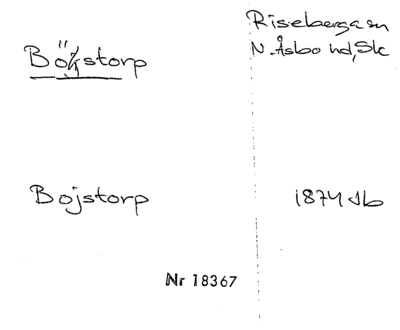 Riseberga sn
N. Åsbo hd, Sk
Bökstorp
Bojstorp
1874 Jb
Nr 18367